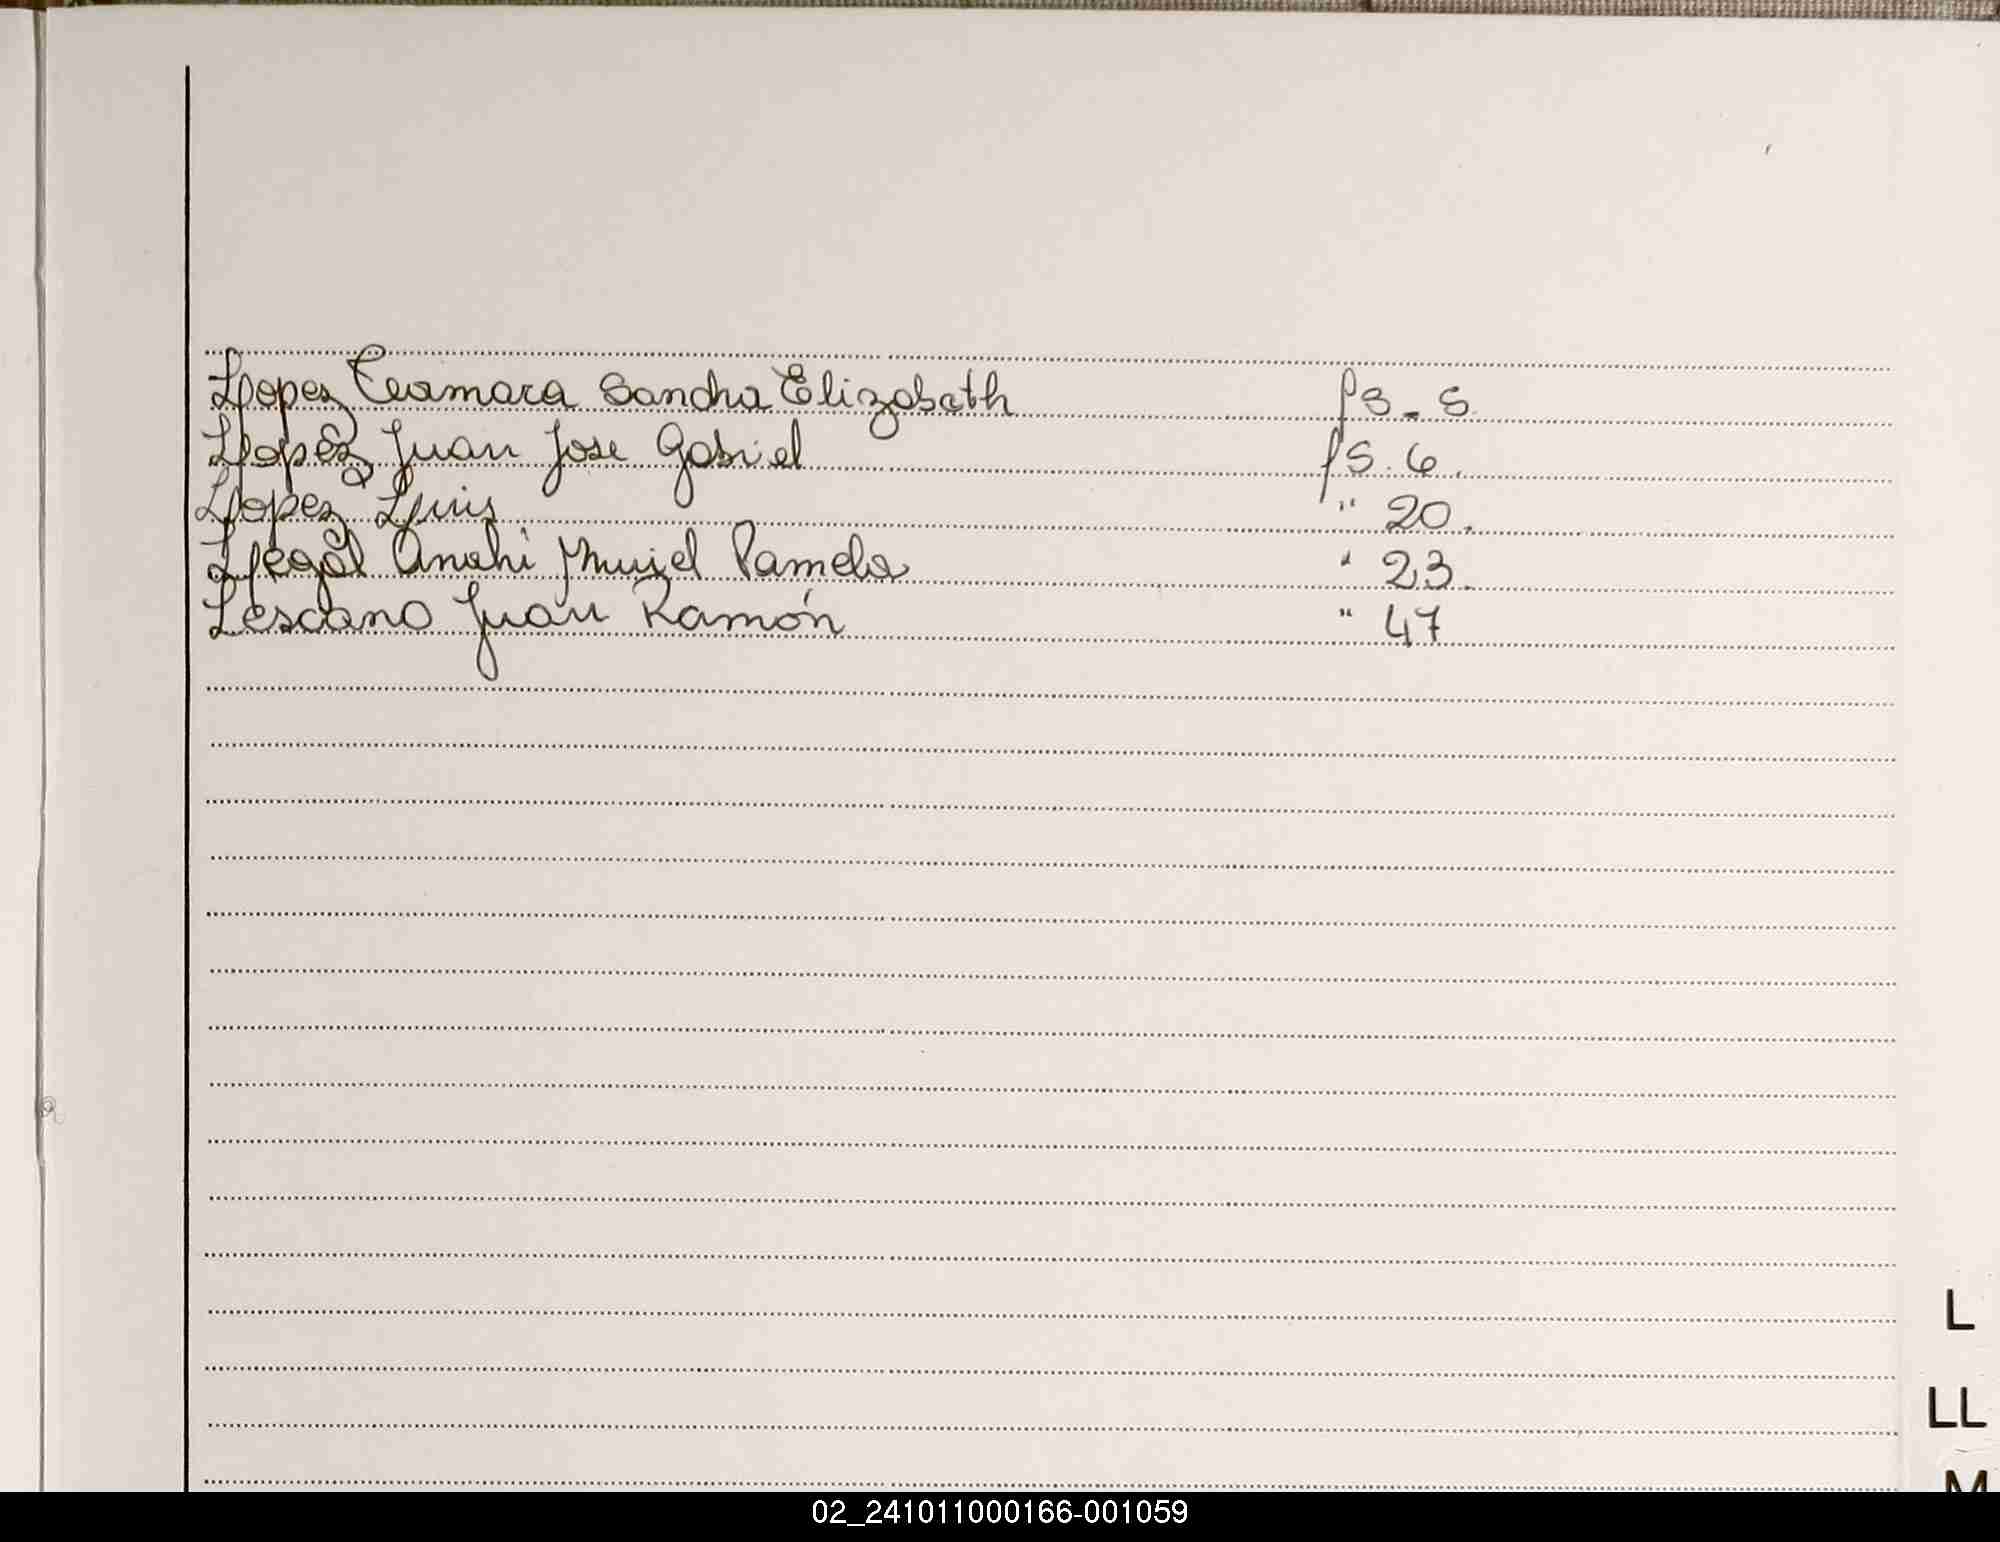 Lopez Teamara Sandra Elizabeth fs. 5
Lopez Juan Jose Gabriel fs. 6.
Lopez Luis " 20.
Legal Anahi Muriel Pamela " 23.
Lescano Juan Ramón " 47
L
LL
M
02_241011000166-001059